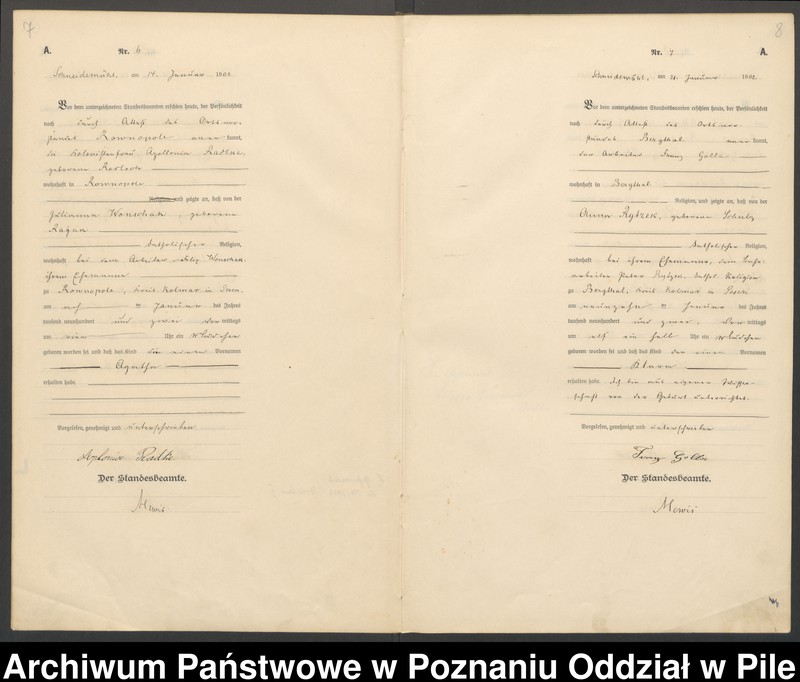 7
A.
Nr. 6
Schneidemühl, am 14. Januar 1902.
Vor dem unterzeichneten Standesbeamten erschien heute, der Persönlichkeit
nach durch Attest des Ortsvor-
standes Rownopole anerkannt,
die Kolonistenfrau Apollonia Radtke,
geborene
wohnhaft in Rownopole
Religion, und zeigte an, daß von der
Julianna Wonschak, geborene
katholischer Religion,
wohnhaft bei dem Arbeiter Wonschak,
ihrem Ehemanne
zu Rownopole, Kreis Kolmar in Posen,
am acht ten Januar des Jahres
tausend neunhundert und zwei Vormittags
um Uhr ein Mädchen
geboren worden sei und daß das Kind den einen Vornamen
Agatha
erhalten habe.
Vorgelesen, genehmigt und unterschrieben
Radtke
Der Standesbeamte.
Mewis
8
Nr. 7
A.
Schneidemühl, am 21. Januar 1902.
Vor dem unterzeichneten Standesbeamten erschien heute, der Persönlichkeit
nach durch Attest des Ortsvor-
standes Bergthal anerkannt,
der Arbeiter Franz Golla
wohnhaft in Bergthal
Religion, und zeigte an, daß von der
geborene Schulz
katholischer Religion,
wohnhaft bei ihrem Ehemanne, dem
arbeiter Peter kathol. Religion
zu Bergthal, Kreis Kolmar in Posen
am neunzehn ten Januar des Jahres
tausend neunhundert und zwei, Vormittags
um elf ein halb Uhr ein Mädchen
geboren worden sei und daß das Kind den einen Vornamen
Klara
erhalten habe. Ich bin aus eigener Wissen-
schaft von der Geburt unterrichtet.
Vorgelesen, genehmigt und unterschrieben
Franz Golla
Der Standesbeamte.
Mewis
Archiwum Państwowe w Poznaniu Oddział w Pile